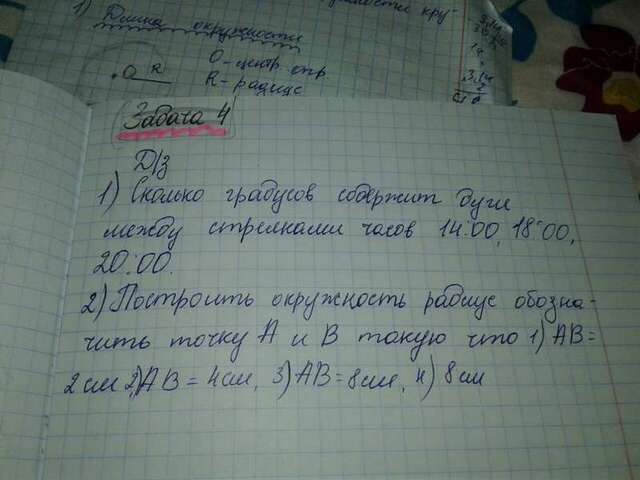 1) Длина окружности
О R
О - центр окр
R - радиус
3,14
Задача 4
Д/з
1) Сколько градусов содержит дуги
между стрелками часов 14:00, 18:00,
20:00.
2) Построить окружность радиус обозна-
чить точку А и В такую что 1) АВ=
2 см 2) АВ = 4см, 3) АВ=8см, 4) 8см